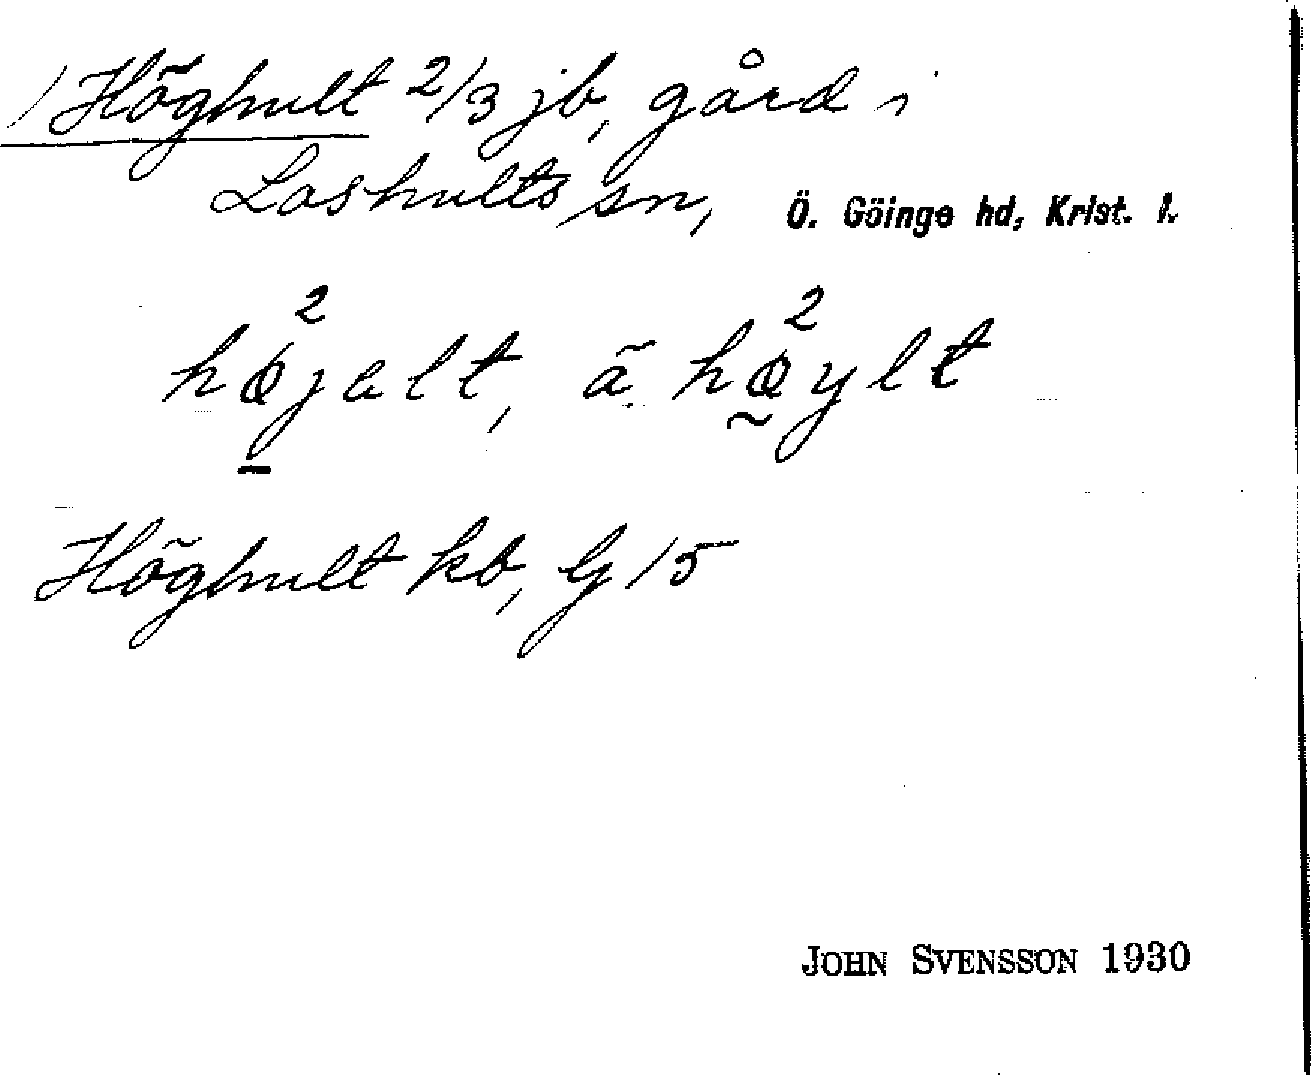 1 Höghult 2/3 jb, gård i
Loshults sn, Ö. Göinge hd, Krist. l.
hø²jalt, ä hø²ylt
Höghult kb, G 15
JOHN SVENSSON 1930